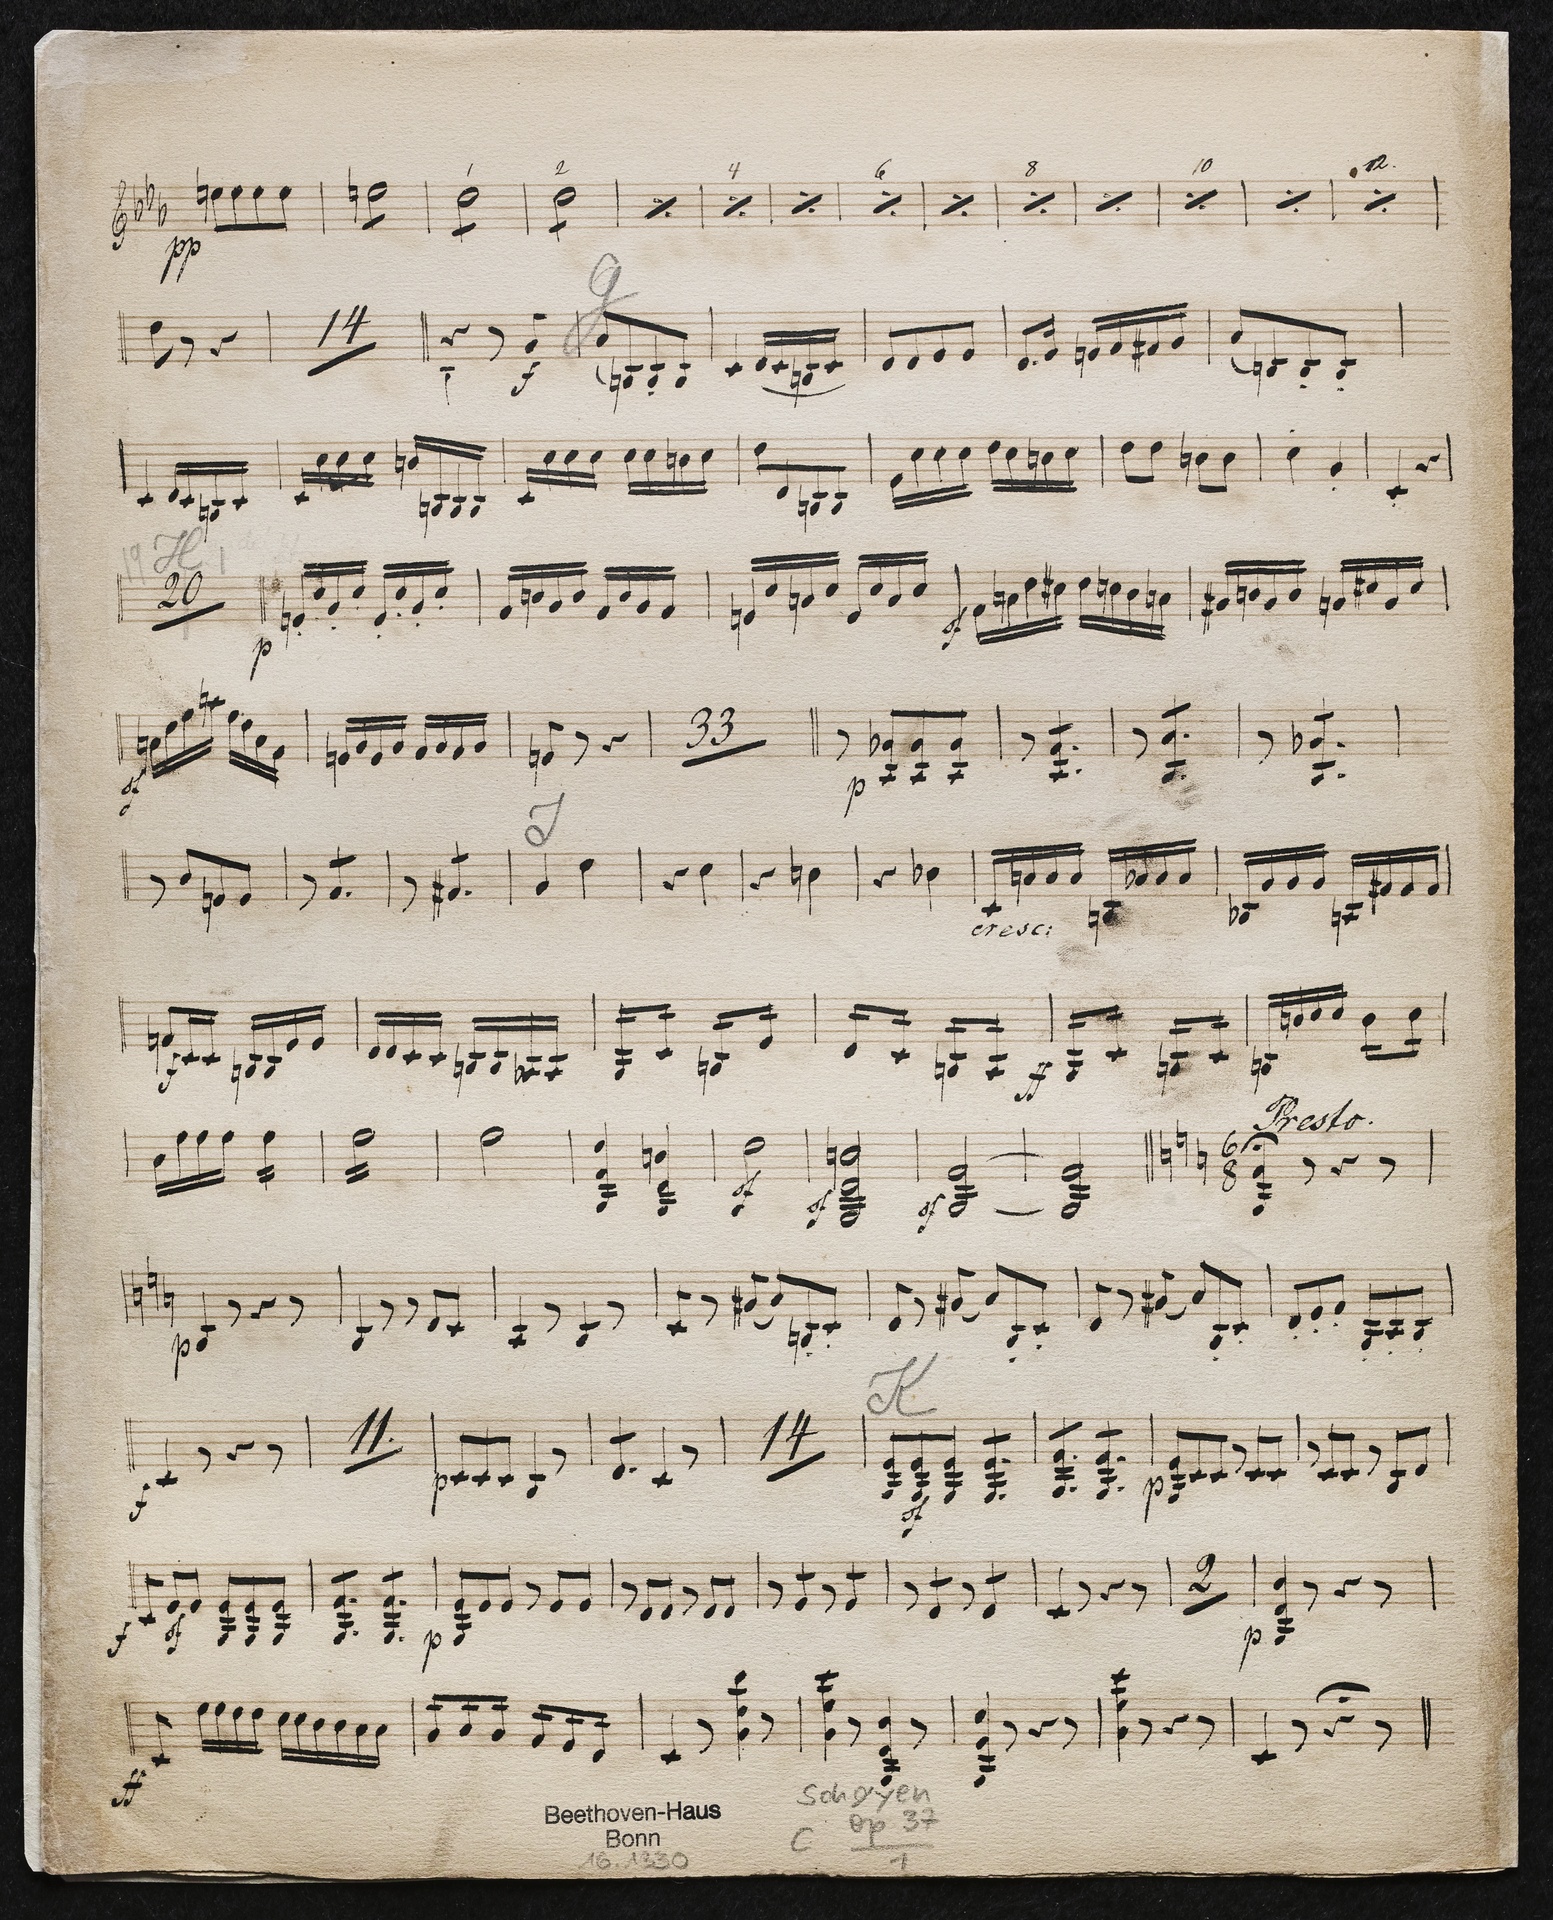 1 2 4 6 8 10 12.
pp
g
14
f
19 H 1
20
p sf
33
sf p
J
cresc:
f ff
Presto.
6
8
sf sf sf
p
K
11. 14
f p sf p
2
f sf p p
ff
Schøyen
Beethoven-Haus
op 37
Bonn
C
16.1330
1